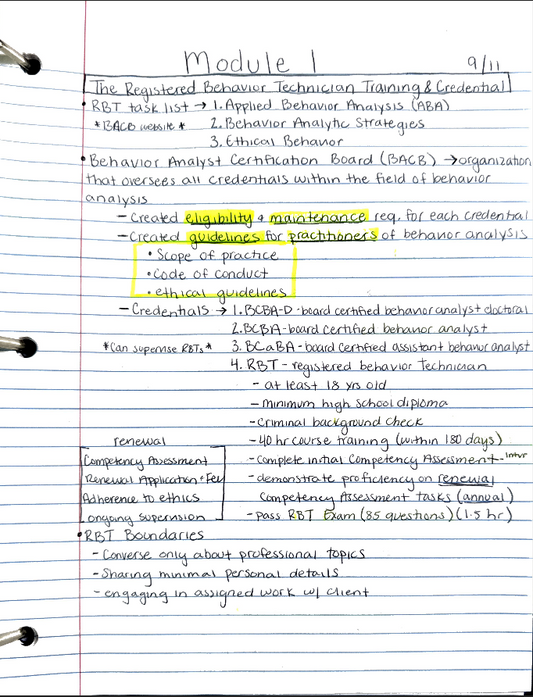 Module 1
9/11
The Registered Behavior Technician Training & Credential
• RBT task list → 1. Applied Behavior Analysis (ABA)
*BACB website* 2. Behavior Analytic Strategies
3. Ethical Behavior
• Behavior Analyst Certification Board (BACB) → organization
that oversees all credentials within the field of behavior
analysis
- Created eligibility + maintenance req. for each credential
- Created guidelines for practitioners of behavior analysis
• Scope of practice
• Code of conduct
• ethical guidelines
- Credentials → 1. BCBA-D - board certified behavior analyst doctoral
2. BCBA - board certified behavior analyst
*Can supervise RBTs* 3. BCaBA - board certified assistant behavior analyst
4. RBT - registered behavior technician
- at least 18 yrs old
- minimum high school diploma
- criminal background check
renewal - 40 hr course training (within 180 days)
Competency Assessment - complete initial Competency Assessment -
Renewal Application + Fee - demonstrate proficiency on renewal
Adherence to ethics Competency Assessment tasks (annual)
ongoing supervision - pass RBT Exam (85 questions) (1.5 hr)
• RBT Boundaries
- Converse only about professional topics
- Sharing minimal personal details
- engaging in assigned work w/ client